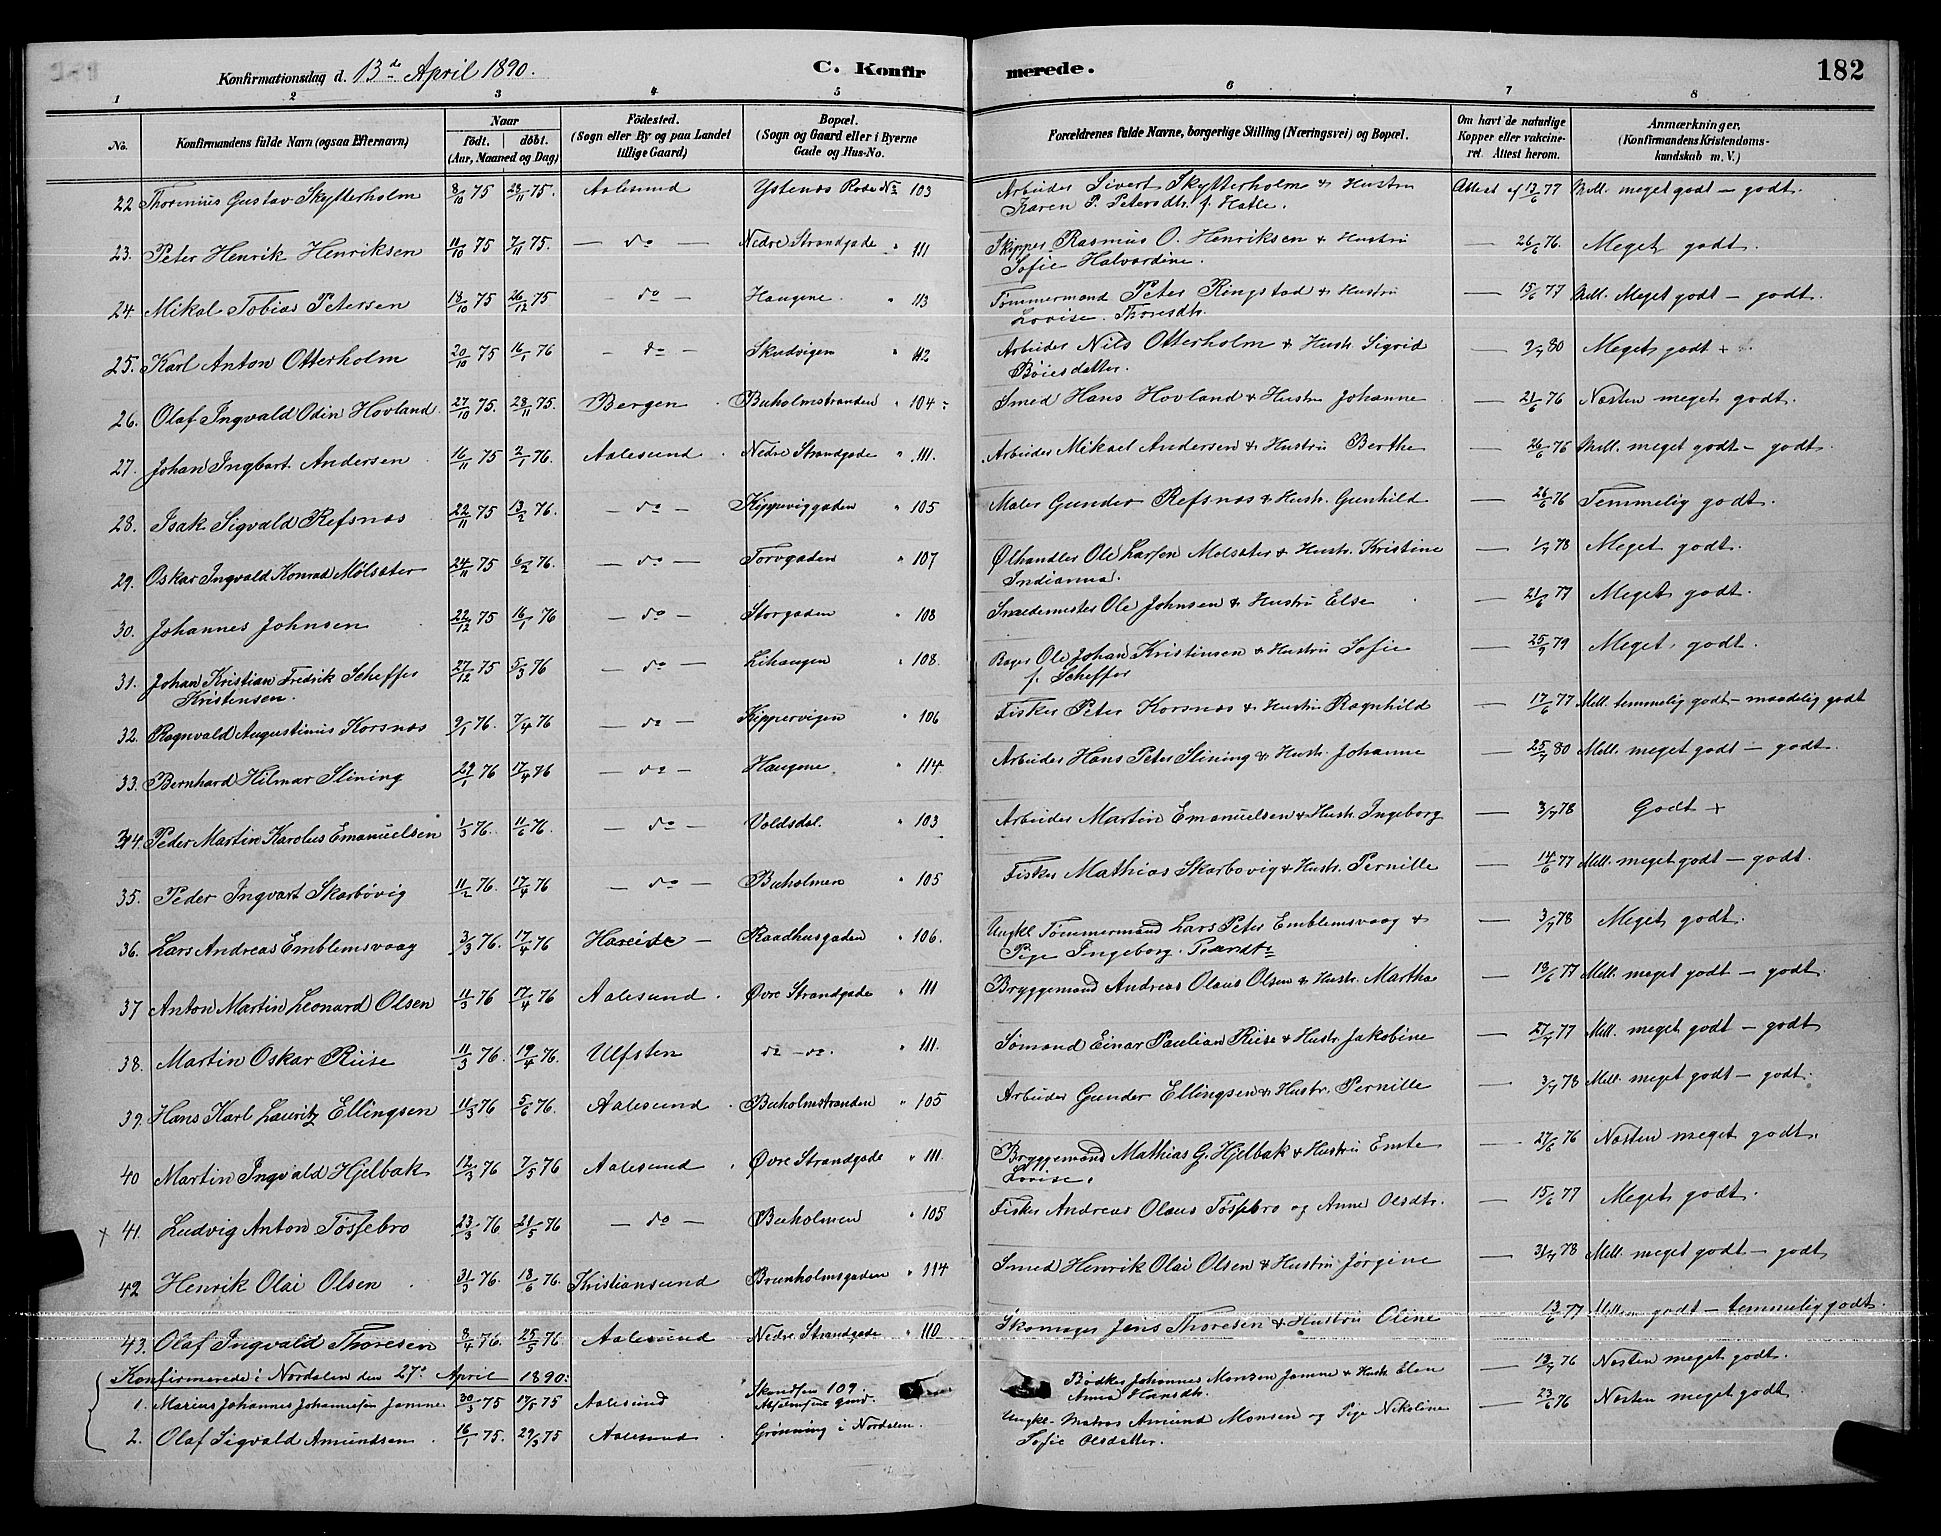 182
Konfirmationsdag d. 13de April 1890. C. Konfirmerede.
1 2 3 4 5 6 7 8
No. Konfirmandens fulde Navn (ogsaa Efternavn) Naar födt. döbt. (Aar, Maaned og Dag) Födested. (Sogn eller By og paa Landet tillige Gaard) Bopæl. (Sogn og Gaard eller i Byerne Gade og Hus-No. Forældrenes fulde Navne, borgerlige Stilling (Næringsvei) og Bopæl. Om havt de naturlige Kopper eller vakcineret. Attest herom. Anmærkninger, (Konfirmandens Kristendomskundskab m. V.)
22 Thorinius Gustav Skytterholm 8/10 75 28/11 75. Aalesund Ystenæs Rode No 103 Arbeider Sivert Skytterholm & Hustru Attest af 12/6 77 Mell. meget godt – godt.
Karen P. Petersdtr. f. Hatle.
23. Peter Henrik Henriksen 11/10 75 7/11 75. — do — Nedre Strandgade " 111 Skipper Rasmus O. Henriksen & Hustru — 26/6 76. Meget godt.
Sofie Halvardine.
24. Mikal Tobias Petersen 13/10 75 26/12 75 — do — Haugene. " 113 Tømmermand Peter Ringstad & Hustru — 15/6 77 Mell. Meget godt – godt.
Lovise Thoresdtr.
25. Karl Anton Otterholm 20/10 75 16/1 76 — do — Skudvigen " 112 Arbeider Nils Otterholm & Hustr. Sigrid — 9/7 80 Meget godt +
Bøiesdatter.
26. Olaf Ingvald Odin Hovland 27/10 75. 28/11 75. Bergen Buholmstranden " 104 Smed Hans Hovland & Hustru Johanne — 21/6 76 Næsten meget godt.
27. Johan Ingbart Andersen 16/11 75 2/1 76. Aalesund Nedre Strandgade " 111. Arbeider Mikael Andersen & Hustru Berthe — 26/6 76 Mell. meget godt – godt
28. Isak Sigvald Refsnæs 22/11 75 13/2 76. — do — Kipperviggaden " 105 Maler Gunder Refsnæs & Hustr. Gunhild — 26/6 76 Temmelig godt.
29. Oskar Ingvald Konrad Mølsæter 24/11 75 6/2 76. — do — Torvgaden " 107 Ølhandler Ole Larsen Mølsæter & Hustr. Kristine — 1/7 78 Meget godt.
Indianna.
30. Johannes Johnsen 22/12 75 16/1 76 — do — Storgaden " 108 Snedkermester Ole Johnsen & Hustru Else — 21/6 77 Meget godt.
31. Johan Kristian Fredrik Scheffer 27/12 75 5/3 76 — do — Lihaugen " 108. Bager Ole Johan Kristensen & Hustru Sofie — 25/9 79 Meget godt.
Kristensen. f. Scheffer
32. Ragnvald Augustinus Korsnæs 9/1 76. 7/4 76 — do — Kippervigen " 106 Fisker Peter Korsnæs & Hustru Ragnhild — 12/6 77 Mell. temmelig godt – maadelig godt
33. Bernhard Hilmar Slining 29/1 76 17/4 76 — do — Haugene " 114. Arbeider Hans Peter Slining & Hustr. Johanne — 25/7 80 Mell. meget godt – godt.
34. Peder Martin Karolus Emanuelsen 1/3 76. 11/6 76. — do — Voldsdal. " 103 Arbeider Martin Emanuelsen & Hustr. Ingeborg — 3/7 78 Godt +
35. Peder Ingvart Skarbøvig 11/2 76. 17/4 76 — do — Buholmen " 105 Fisker Mathias Skarbøvig & Hustr. Pernille — 14/6 77 Mell. meget godt – godt.
36. Lars Andreas Emblemsvaag 3/3 76. 17/4 76 Hareide — Raadhusgaden " 106. Ungkl. Tømmermand Lars Peter Emblemsvaag & — 3/7 78 Meget godt.
Pige Ingeborg
37 Anton Martin Leonard Olsen 11/3 76 17/4 76 Aalesund Øvre Strandgade " 111 Bryggemand Andreas Olaus Olsen & Hustr. Martha — 18/6 77 Mell. meget godt – godt.
38. Martin Oskar Riise 11/3 76. 19/4 76. Ulfsten do — do. " 111. Sømand Einar Paulian Riise & Hustr. Jakobine — 27/7 77 Mell. meget godt – godt
39. Hans Karl Lauritz Ellingsen 11/3 76 5/6 76. Aalesund Buholmstranden " 105 Arbeider Gunder Ellingsen & Hustr. Pernille — 3/7 78 Mell. meget godt – godt.
40 Martin Ingvald Hjelbak 12/3 76 7/5 76 Aalesund Øvre Strandgade " 111. Bryggemand Mathias G. Hjelbak & Hustru Emte — 27/6 76 Næsten meget godt.
Lovise.
+ 41. Ludvig Anton Tøssebro 23/3 76 21/5 76 — do — Buholmen " 105 Fisker Andreas Olaus Tøssebro og Anne Olsdtr. — 15/6 77 Meget godt.
42 Henrik Olai Olsen 31/3 76. 18/6 76. Kristiansund Brunholmsgaden " 114 Smed Henrik Olai Olsen & Hustru Jørgine — 31/7 78 Mell. meget godt – godt
43. Olaf Ingvald Thoresen 8/4 76. 25/5 76. Aalesund Nedre Strandgade " 110 Skomager Jens Thoresen & Hustru Oline — 13/6 77 Mellem godt – temmelig godt.
Konfirmerede i Nordalen den 27de April 1890:
1. Marius Johannes Johannessen Jamne 30/3 75 17/5 75 Aalesund 109 Bødker Johannes Monsen Jamne & Hustr. Elen — 13/7 76 Næsten meget godt.
Anna Hansdtr.
2. Olaf Sigvald Amundsen 16/1 75. 29/3 75 Aalesund Grønning i Nordalen. Ungkl. Matros Amund Monsen og Pige Nikoline — 23/6 76 Næsten meget godt.
Sofie Olsdatter.